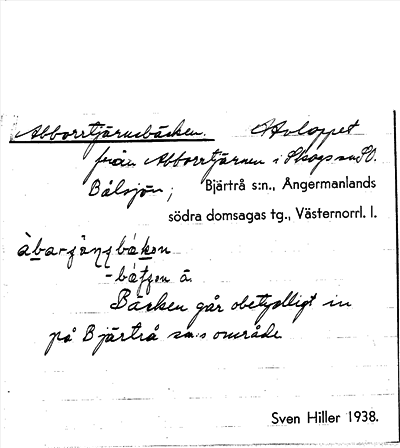 Abborrtjärnsbäcken. Avloppet
från Abborrtjärnen i Skogs sn SO.
Bålsjön; Bjärtrå s:n., Ångermanlands
södra domsagas tg., Västernorrl. l.
Bäcken går obetydligt in
på Bjärtrå sn:s område
Sven Hiller 1938.